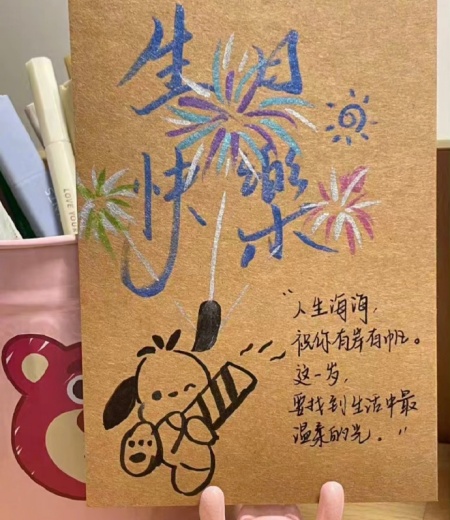 生日
快樂
“人生海海，
祝你有岸有帆。
这一岁，
要找到生活中最
温柔的光。”
LOVE YOUR